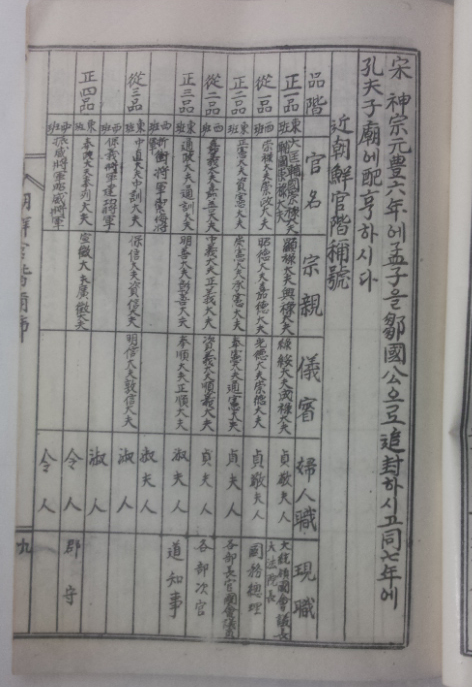 宋 神宗元豊六年에 孟子를 鄒國公으로 追封하시고 同七年에
孔夫子廟에 配享하시다
近朝鮮官階稱號
品階 官名 宗親 儀賓 婦人職 現職
正一品 東西班 大匡輔國崇祿大夫 輔國崇祿大夫 顯祿大夫興祿大夫 綏祿大夫成祿大夫 貞敬夫人 大統領國會議長 大法院長
從一品 東西班 崇祿大夫崇政大夫 昭德大夫嘉德大夫 光德大夫崇德大夫 貞敬夫人 國務總理
正二品 東西班 正憲大夫資憲大夫 崇憲大夫承憲大夫 奉憲大夫通憲大夫 貞夫人 各部長官國會議員
從二品 東西班 嘉義大夫嘉善大夫 中義大夫正義大夫 資義大夫順義大夫 貞夫人 各部次官
正三品 東班 通政大夫通訓大夫 明善大夫彰善大夫 奉順大夫正順大夫 淑夫人 道知事
西班 折衝將軍禦侮將軍 淑夫人
從三品 東班 中直大夫中訓大夫 保信大夫資信大夫 明信大夫敦信大夫 淑人
西班 保義將軍建功將軍 淑人
正四品 東班 奉正大夫奉列大夫 宣徽大夫廣徽大夫 令人 郡守
西班 振威將軍昭威將軍 令人
朝鮮官階稱號 九